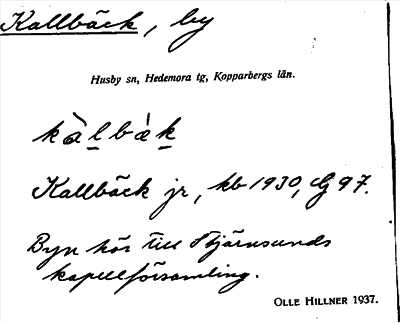 Kallbäck, by
Husby sn, Hedemora tg, Kopparbergs län.
kàlbàk
Kallbäck jr, kb 1930, G 97.
Byn hör till Stjärnsunds
kapellförsamling.
OLLE HILLNER 1937.